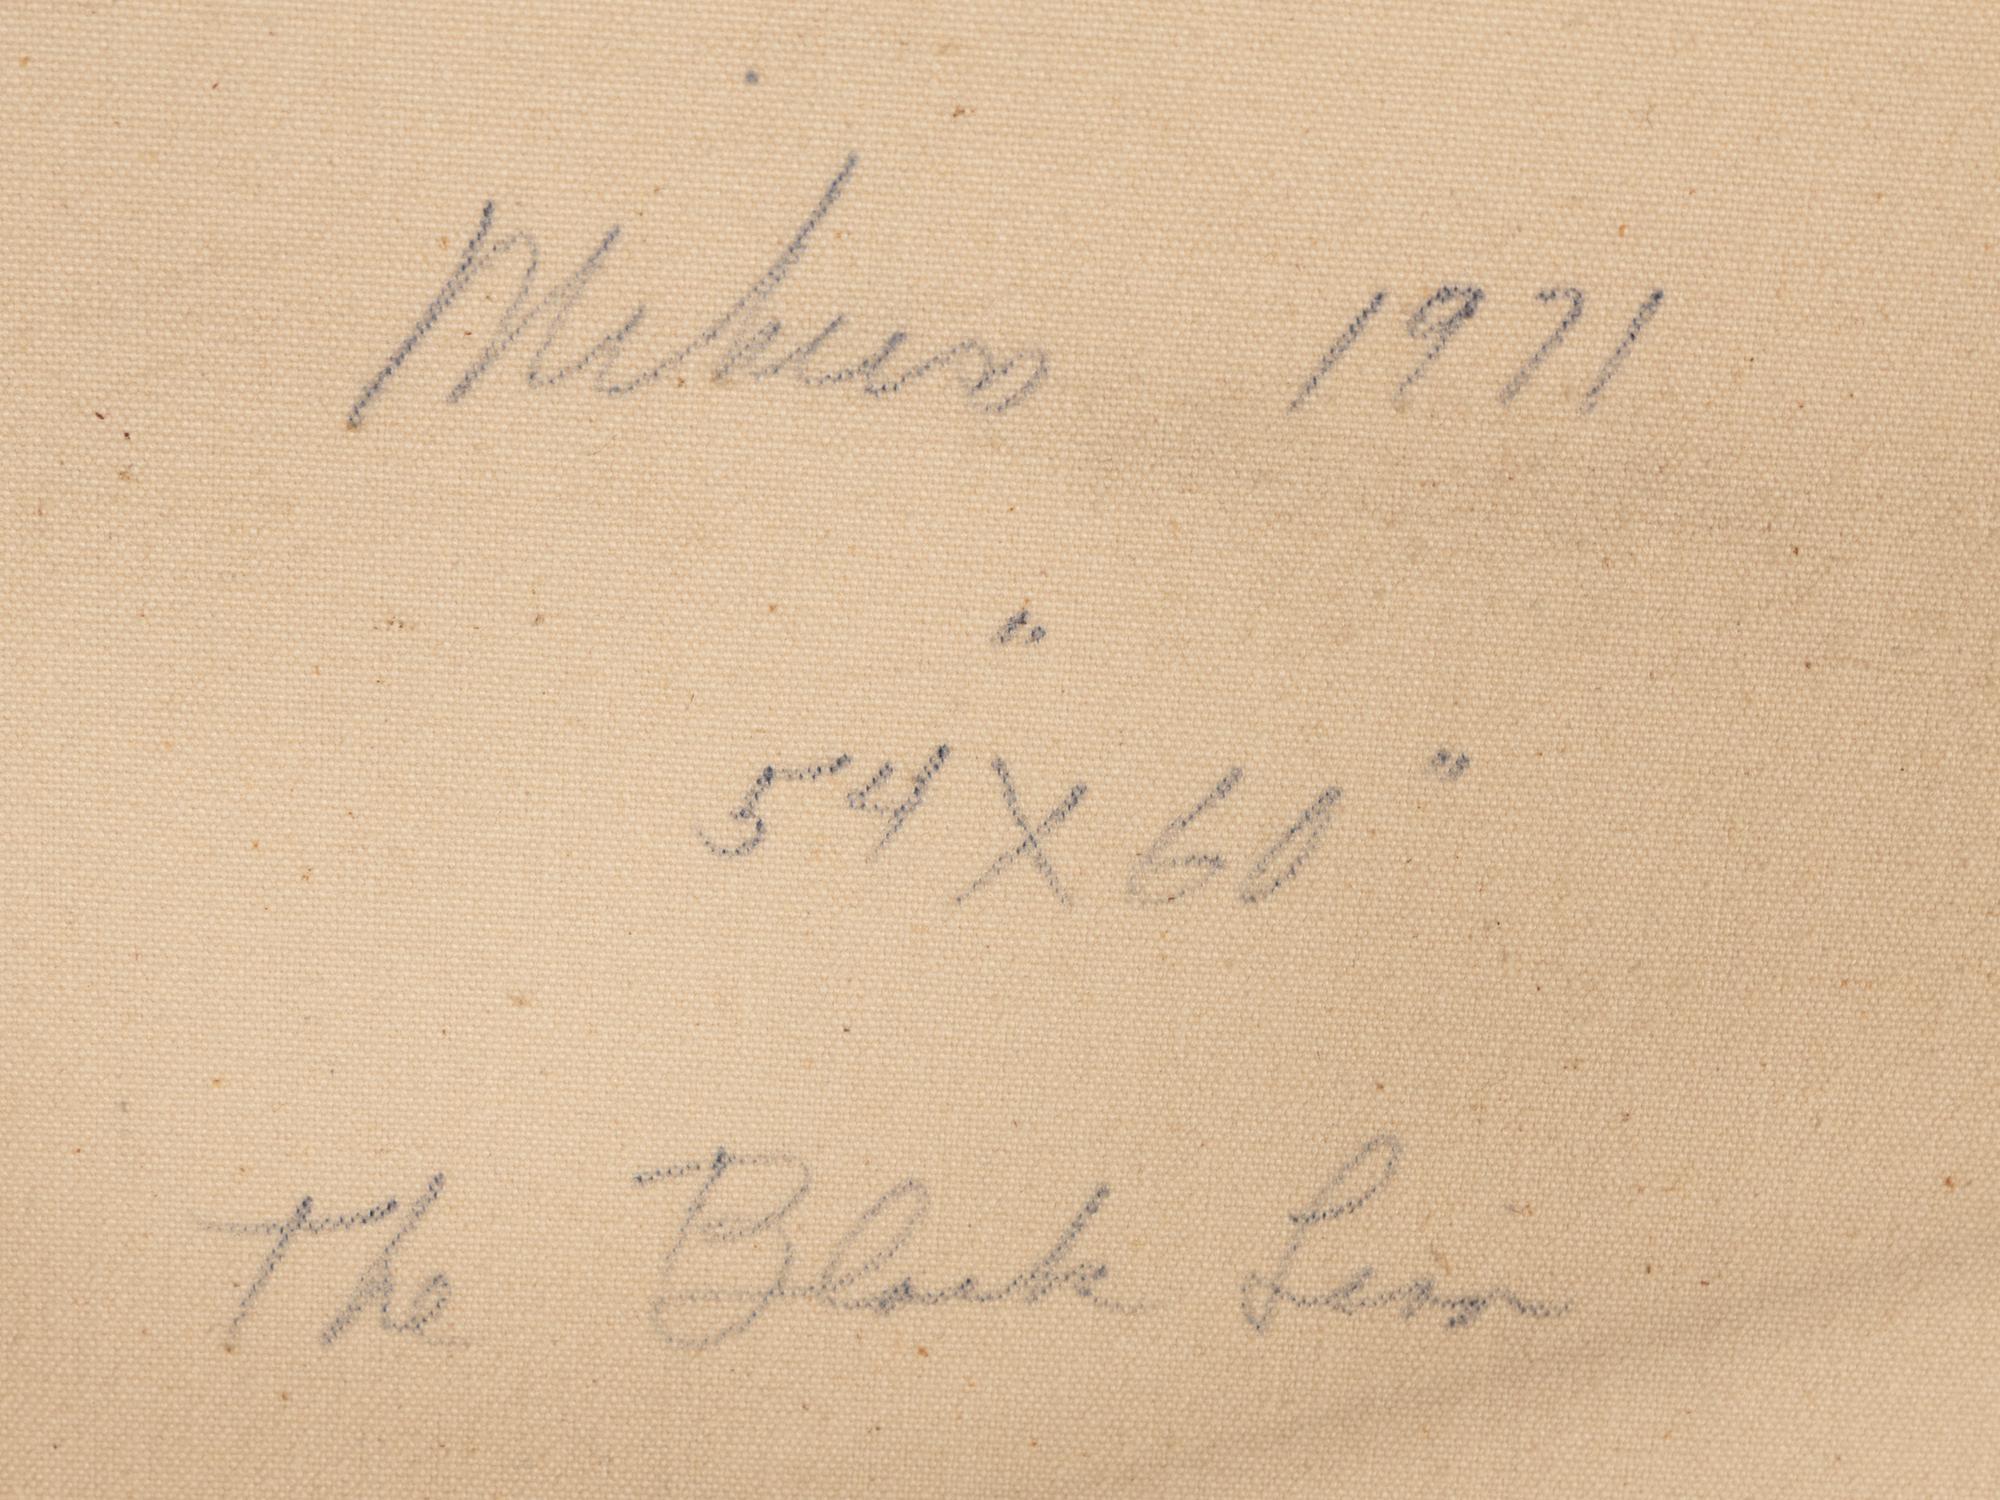 Mikus 1971
54" X 60"
The Black Line